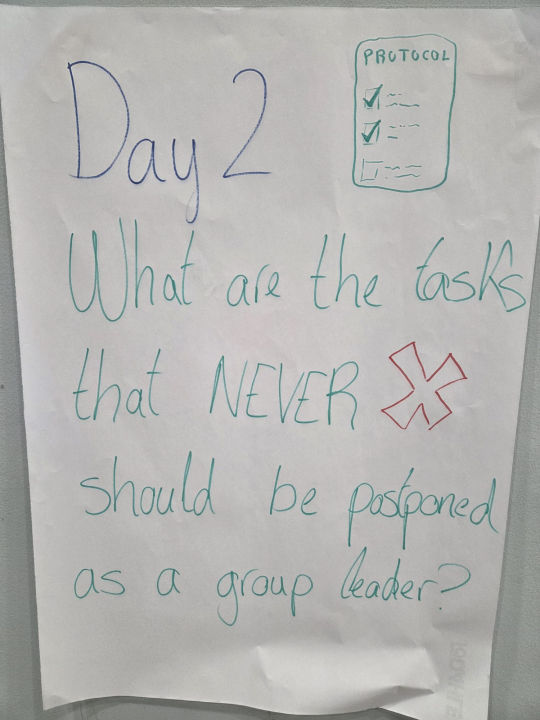 Day 2
PROTOCOL
What are the tasks
that NEVER
should be postponed
as a group leader?